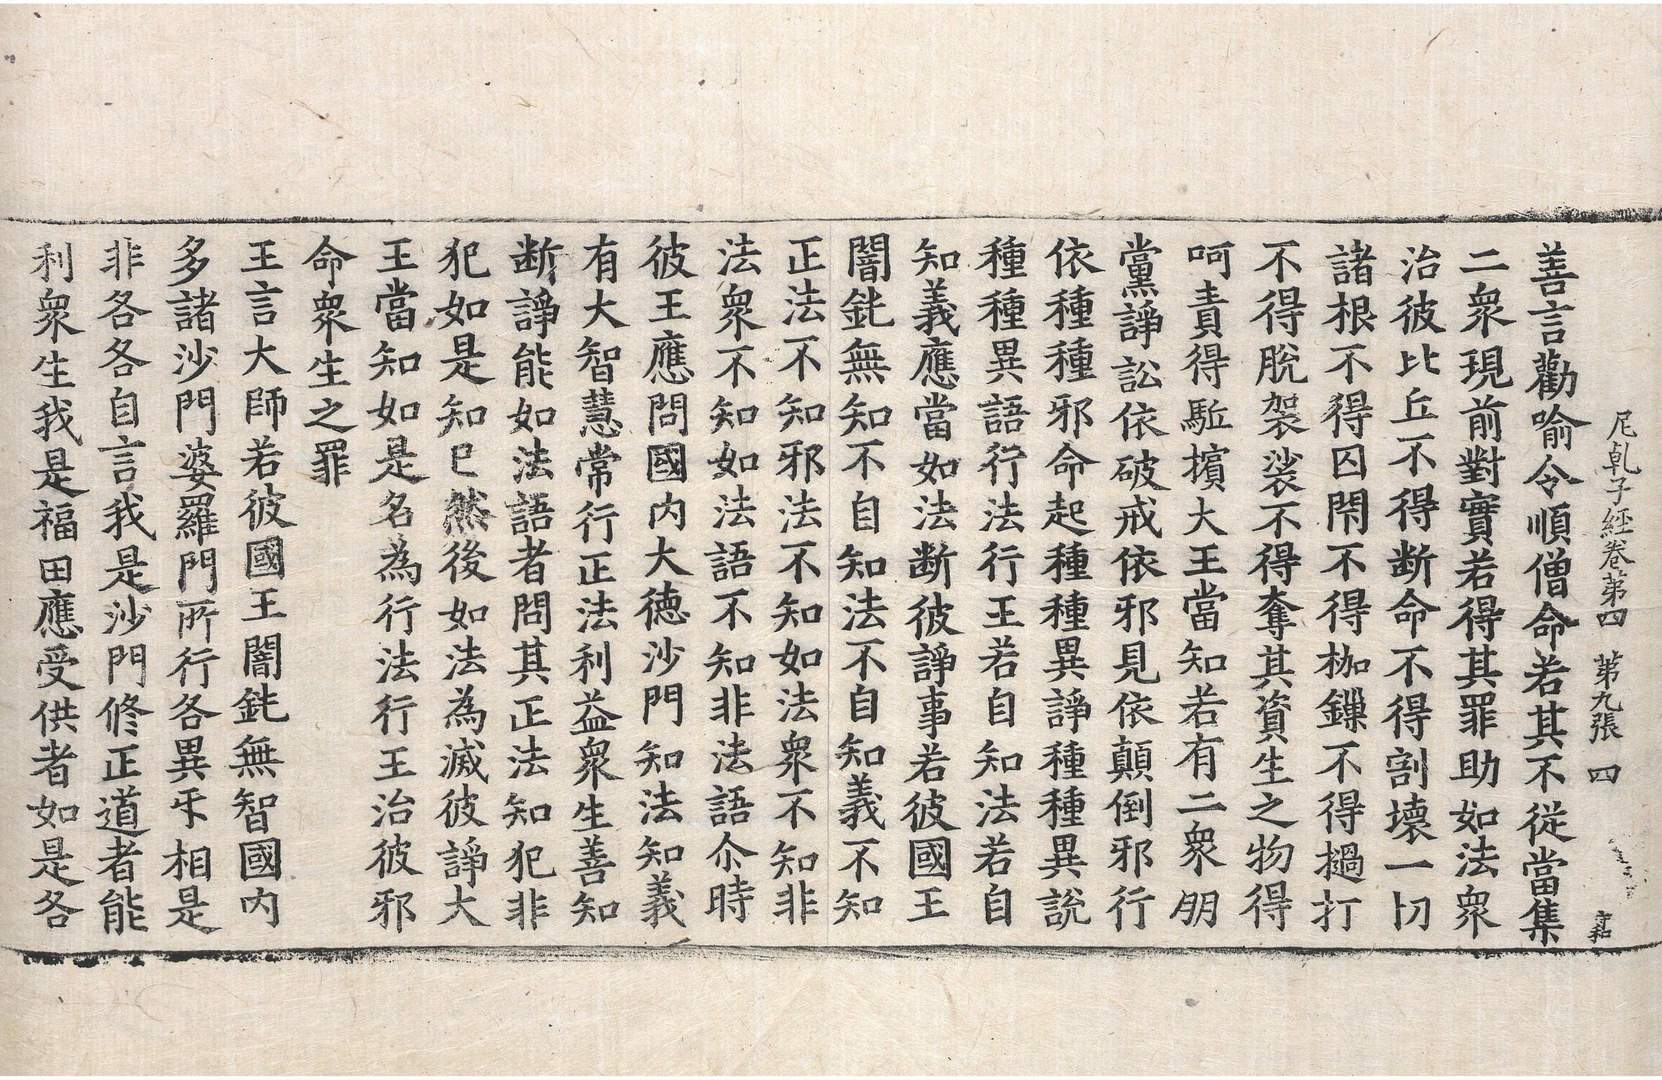 尼乹子經卷第四　第九張　四
善言勸喻令順僧命若其不從當集
二衆現前對實若得其罪助如法衆
治彼比丘不得断命不得割壞一切
諸根不得囚閇不得枷鏁不得撾打
不得脫袈裟不得奪其資生之物得
呵責得駈擯大王當知若有二衆朋
黨諍訟依破戒依邪見依顛倒邪行
依種種邪命起種種異諍種種異說
種種異語行法行王若自知法若自
知義應當如法断彼諍事若彼國王
闇鈍無知不自知法不自知義不知
正法不知邪法不知如法衆不知非
法衆不知如法語不知非法語尒時
彼王應問國内大德沙門知法知義
有大智慧常行正法利益衆生善知
断諍能如法語者問其正法知犯非
犯如是知已然後如法為滅彼諍大
王當知如是名為行法行王治彼邪
命衆生之罪
王言大師若彼國王闇鈍無智國内
多諸沙門婆羅門所行各異㸦相是
非各各自言我是沙門修正道者能
利衆生我是福田應受供者如是各